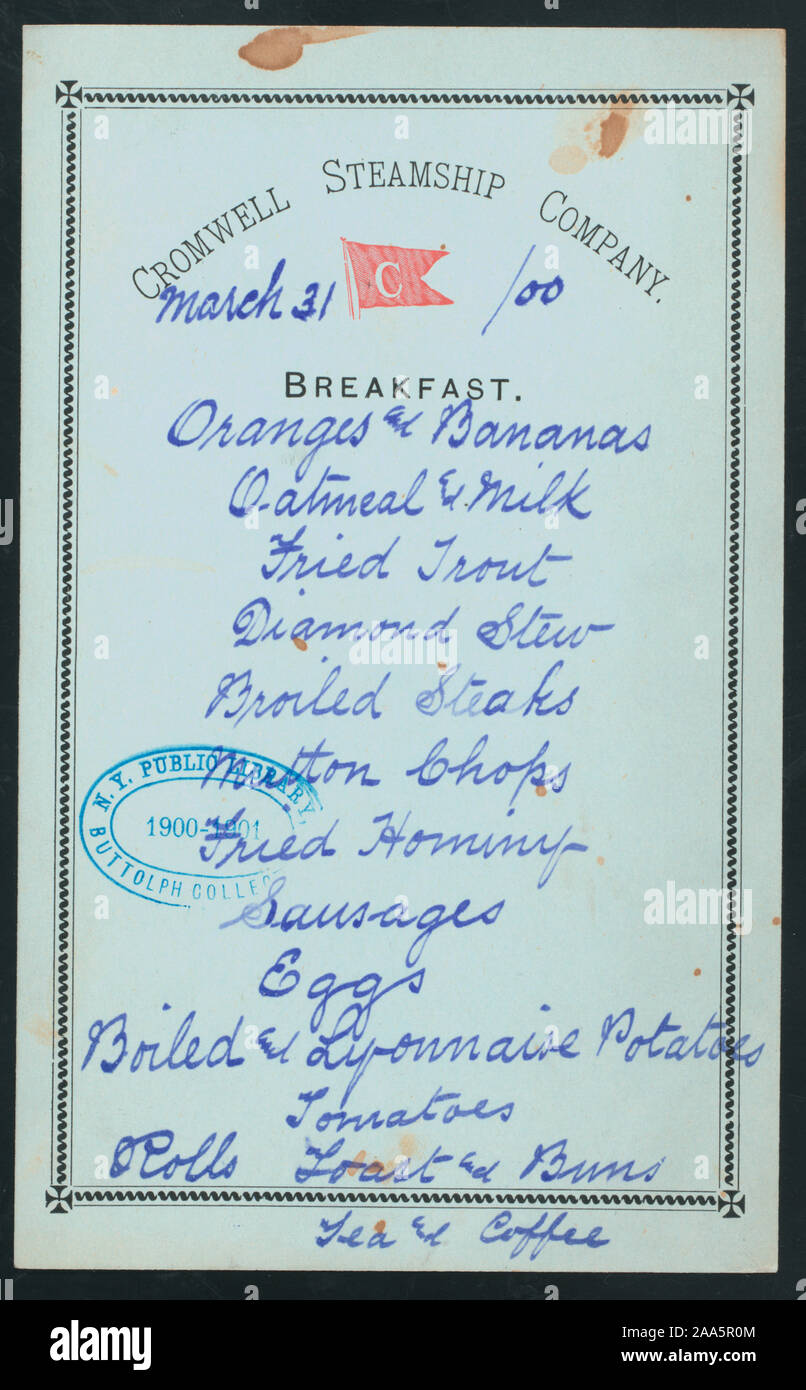 CROMWELL STEAMSHIP COMPANY.
C
March 31 /00
BREAKFAST.
Oranges and Bananas
Oatmeal & Milk
Fried Trout
Diamond Stew
Broiled Steaks
Mutton Chops
N. Y. PUBLIC LIBRARY,
1900-1901
BUTTOLPH COLLEC
Fried Hominy
Sausages
Eggs
Boiled and Lyonnaise Potatoes
Tomatoes
Rolls Toast and Buns
Tea and Coffee
alamy
alamy
alamy
a a a a a a
alamy
Image ID: 2AA5R0M
www.alamy.com